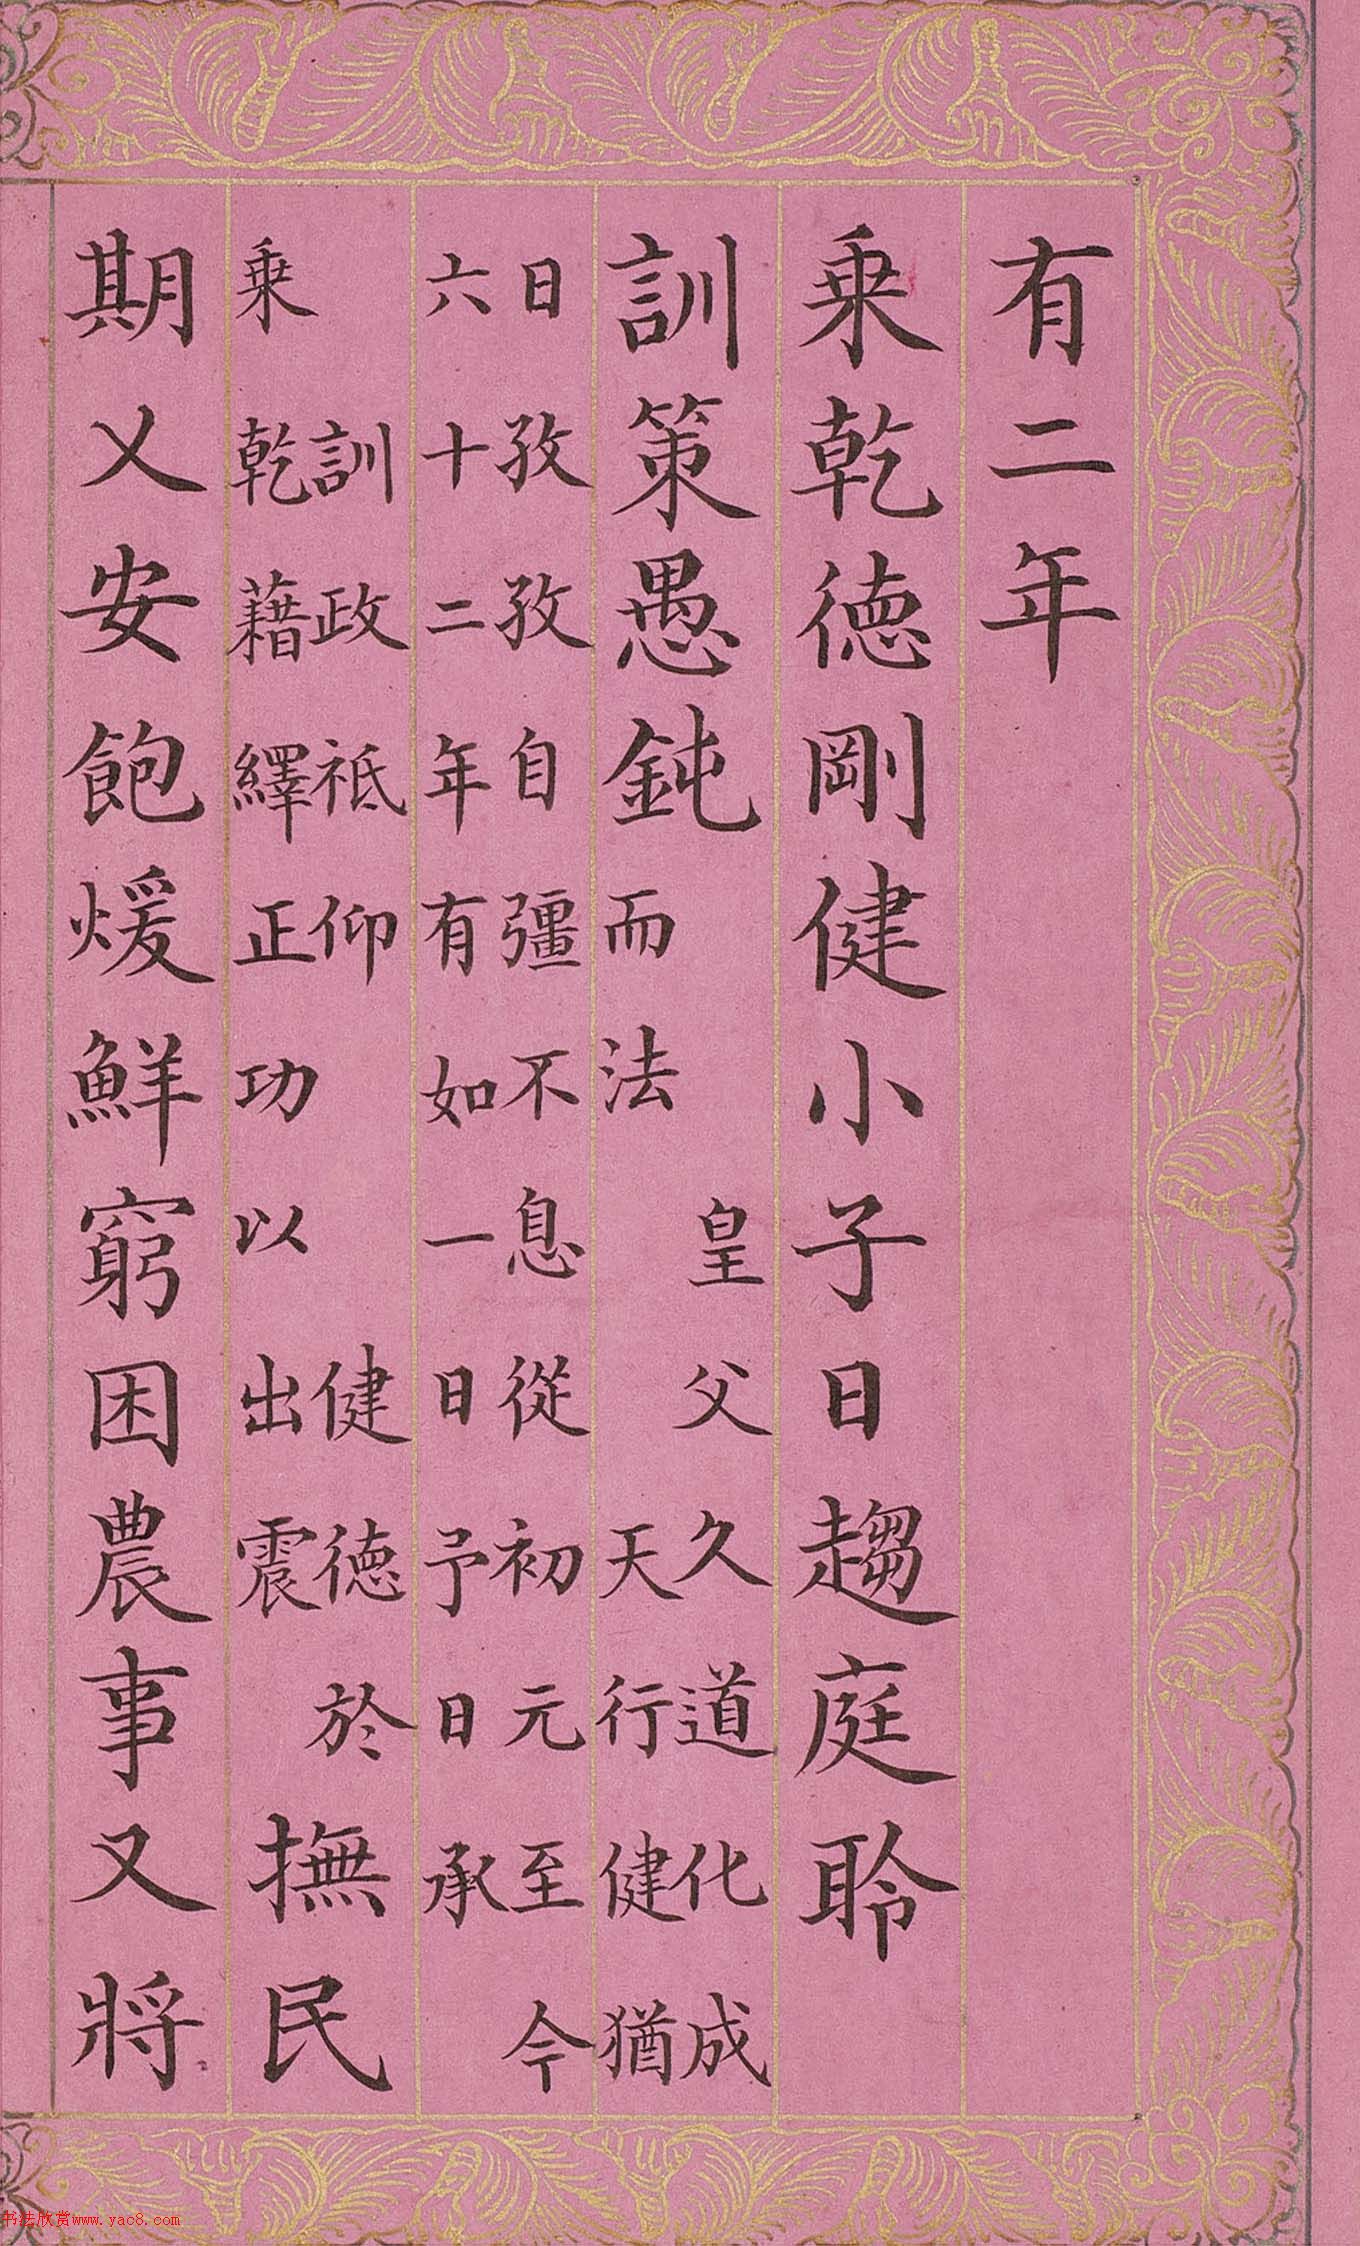 有二年
乗乾徳剛健小子日趨庭聆
訓策愚鈍皇父久道化成
而法天行健猶
日孜孜自彊不息從初元至今
六十二年有如一日予日承
訓政祗仰健徳於
乗乾藉繹正功以出震撫民
期乂安飽煖鮮窮困農事又將
书法欣赏www.yac8.com